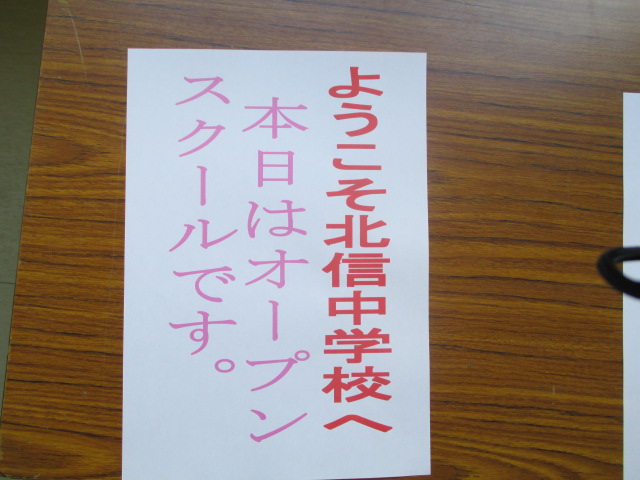 ようこそ北信中学校へ
本日はオープン
スクールです。